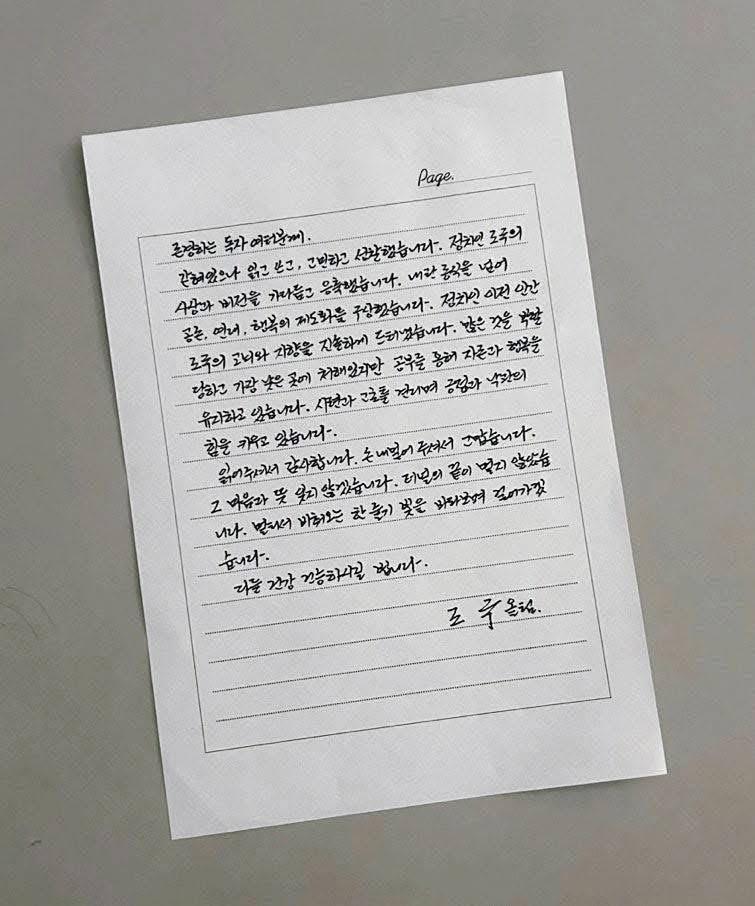 Page.
존경하는 독자 여러분께.
갇혀있으나 읽고 쓰고, 고민하고 성찰했습니다. 정치인 조국의
사상과 비전을 가다듬고 응축했습니다. 내란 종식을 넘어
공존, 연대, 행복의 제도화를 구상했습니다. 정치인 이전 인간
조국의 고뇌와 지향을 진솔하게 드러냈습니다. 많은 것을 박탈
당하고 가장 낮은 곳에 처해있지만 공부를 통해 자존과 행복을
유지하고 있습니다. 시련과 고초를 견디며 긍정과 낙관의
힘을 키우고 있습니다.
읽어주셔서 감사합니다. 손 내밀어 주셔서 고맙습니다.
그 마음과 뜻 잊지 않겠습니다. 터널의 끝이 멀지 않았습
니다. 멀리서 비춰오는 한 줄기 빛을 바라보며 걸어가겠
습니다.
다들 건강 건승하시길 빕니다.
조 국 올림.